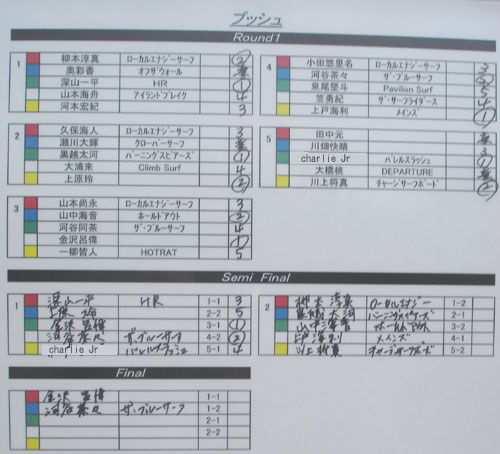 プッシュ
Round1
1 柳本淳真 ローカルエナジーサーフ ②
奥彩香 オフザウォール 棄
深山一平 HR ①
山本海舟 アイランドブレイク 4
河本宏紀 3
2 久保海人 ローカルエナジーサーフ 3
瀬川大輝 クローバーサーフ 棄
黒越太河 バーニングスピアーズ ①
大浦来 Climb Surf 4
上原玲 ②
3 山本尚永 ローカルエナジーサーフ 3
山中海音 ホールドアウト ②
河谷阿茶 ザ・ブルーサーフ 4
金沢呂偉 ①
一柳皆人 HOTRAT 5
4 小田悠里名 ローカルエナジーサーフ 3
河谷茶々 ザ・ブルーサーフ ②
泉尾堅斗 Pavilion Surf 5
笠勇紀 ザ・サーフライダース 4
上戸海利 メインズ ①
5 田中元 棄
川畑快晴 3
charlie Jr バレルスラッシュ ①
大橋桃 DEPARTURE 棄
川上将真 チャージサーフボード ②
Semi Final
1 深山一平 HR 1-1 3
上原玲 2-2 5
金沢呂偉 3-1 ①
河谷茶々 ザ・ブルーサーフ 4-2 ②
charlie Jr バレルスラッシュ 5-1 4
2 柳本淳真 ローカルエナジー 1-2
黒越太河 バーニングスピアーズ 2-1
山中海音 ホールドアウト 3-2
上戸海利 メインズ 4-1
川上将真 チャージサーフボード 5-2
Final
金沢呂偉 1-1
河谷茶々 ザ・ブルーサーフ 1-2
2-1
2-2